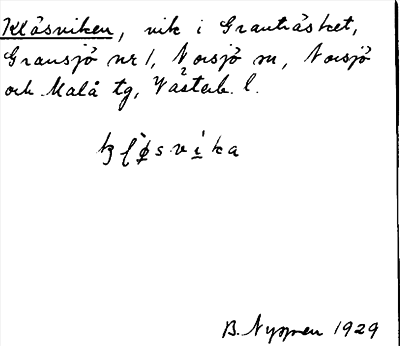 Klåsviken, vik i Granträsket,
Gransjö nr 1, Norsjö sn, Norsjö
och Malå tg, Västerb. l.
B. Nyman 1929